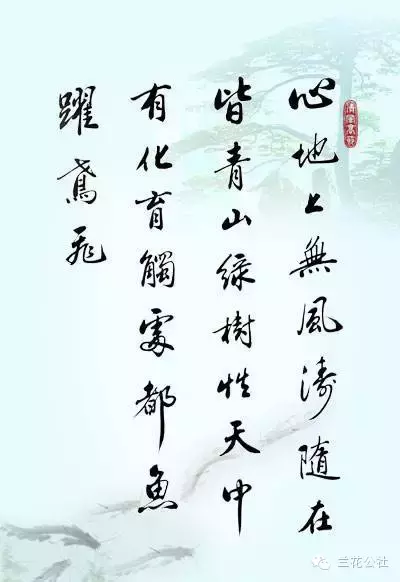 心地上無風濤隨在
皆青山綠樹性天中
有化育觸處都魚
躍鳶飛
清風高節
兰花公社